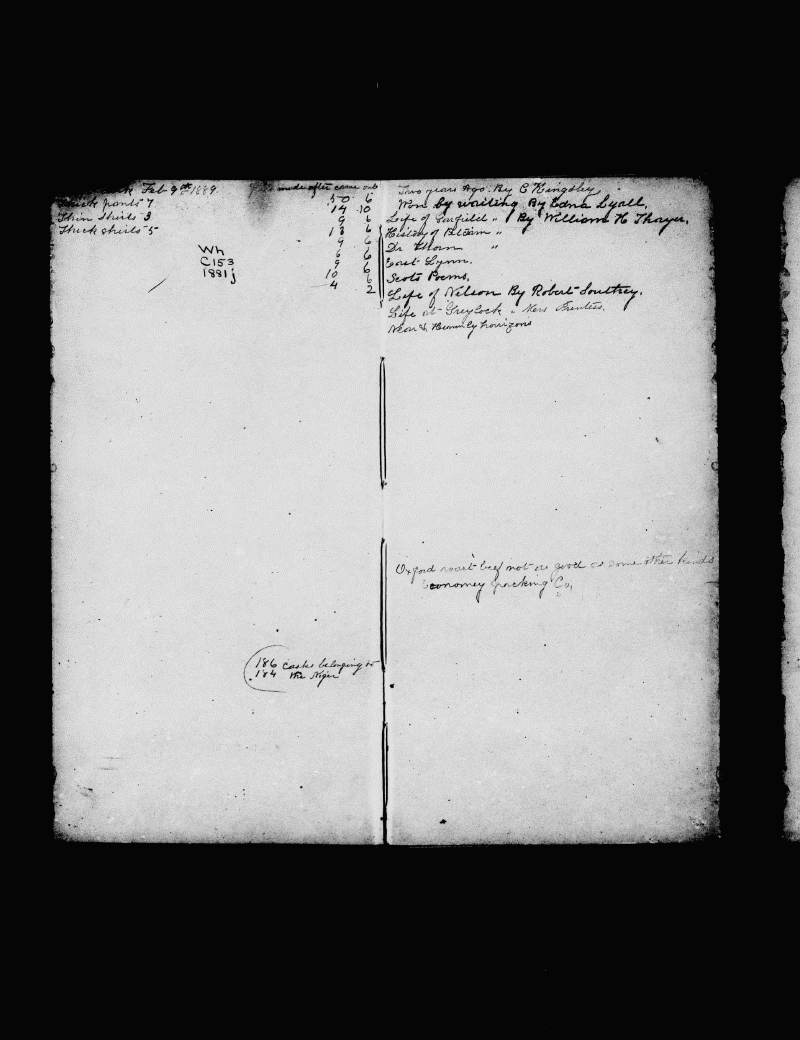 Feb 9th 1889.
Thick pants 7
Thin Shirts 3
Thick shirts 5
Wh
C153
1881j
made after came out
50 6
14 10
9 6
13 6
9 6
6 6
9 6
10 6
4 2
186 casks belonging to
184 the Niger
Two years Ago. By C Kingsley
Won by waiting By Edna Lyall.
Life of Garfield " By William H Thayer.
History of "
Dr Thorn "
East Lynn.
Scots Poems.
Life of Nelson By Robert Southey.
Life at Greylock "
Near horizons
Oxford roast beef not as good as some other kinds
Economey packing Co,